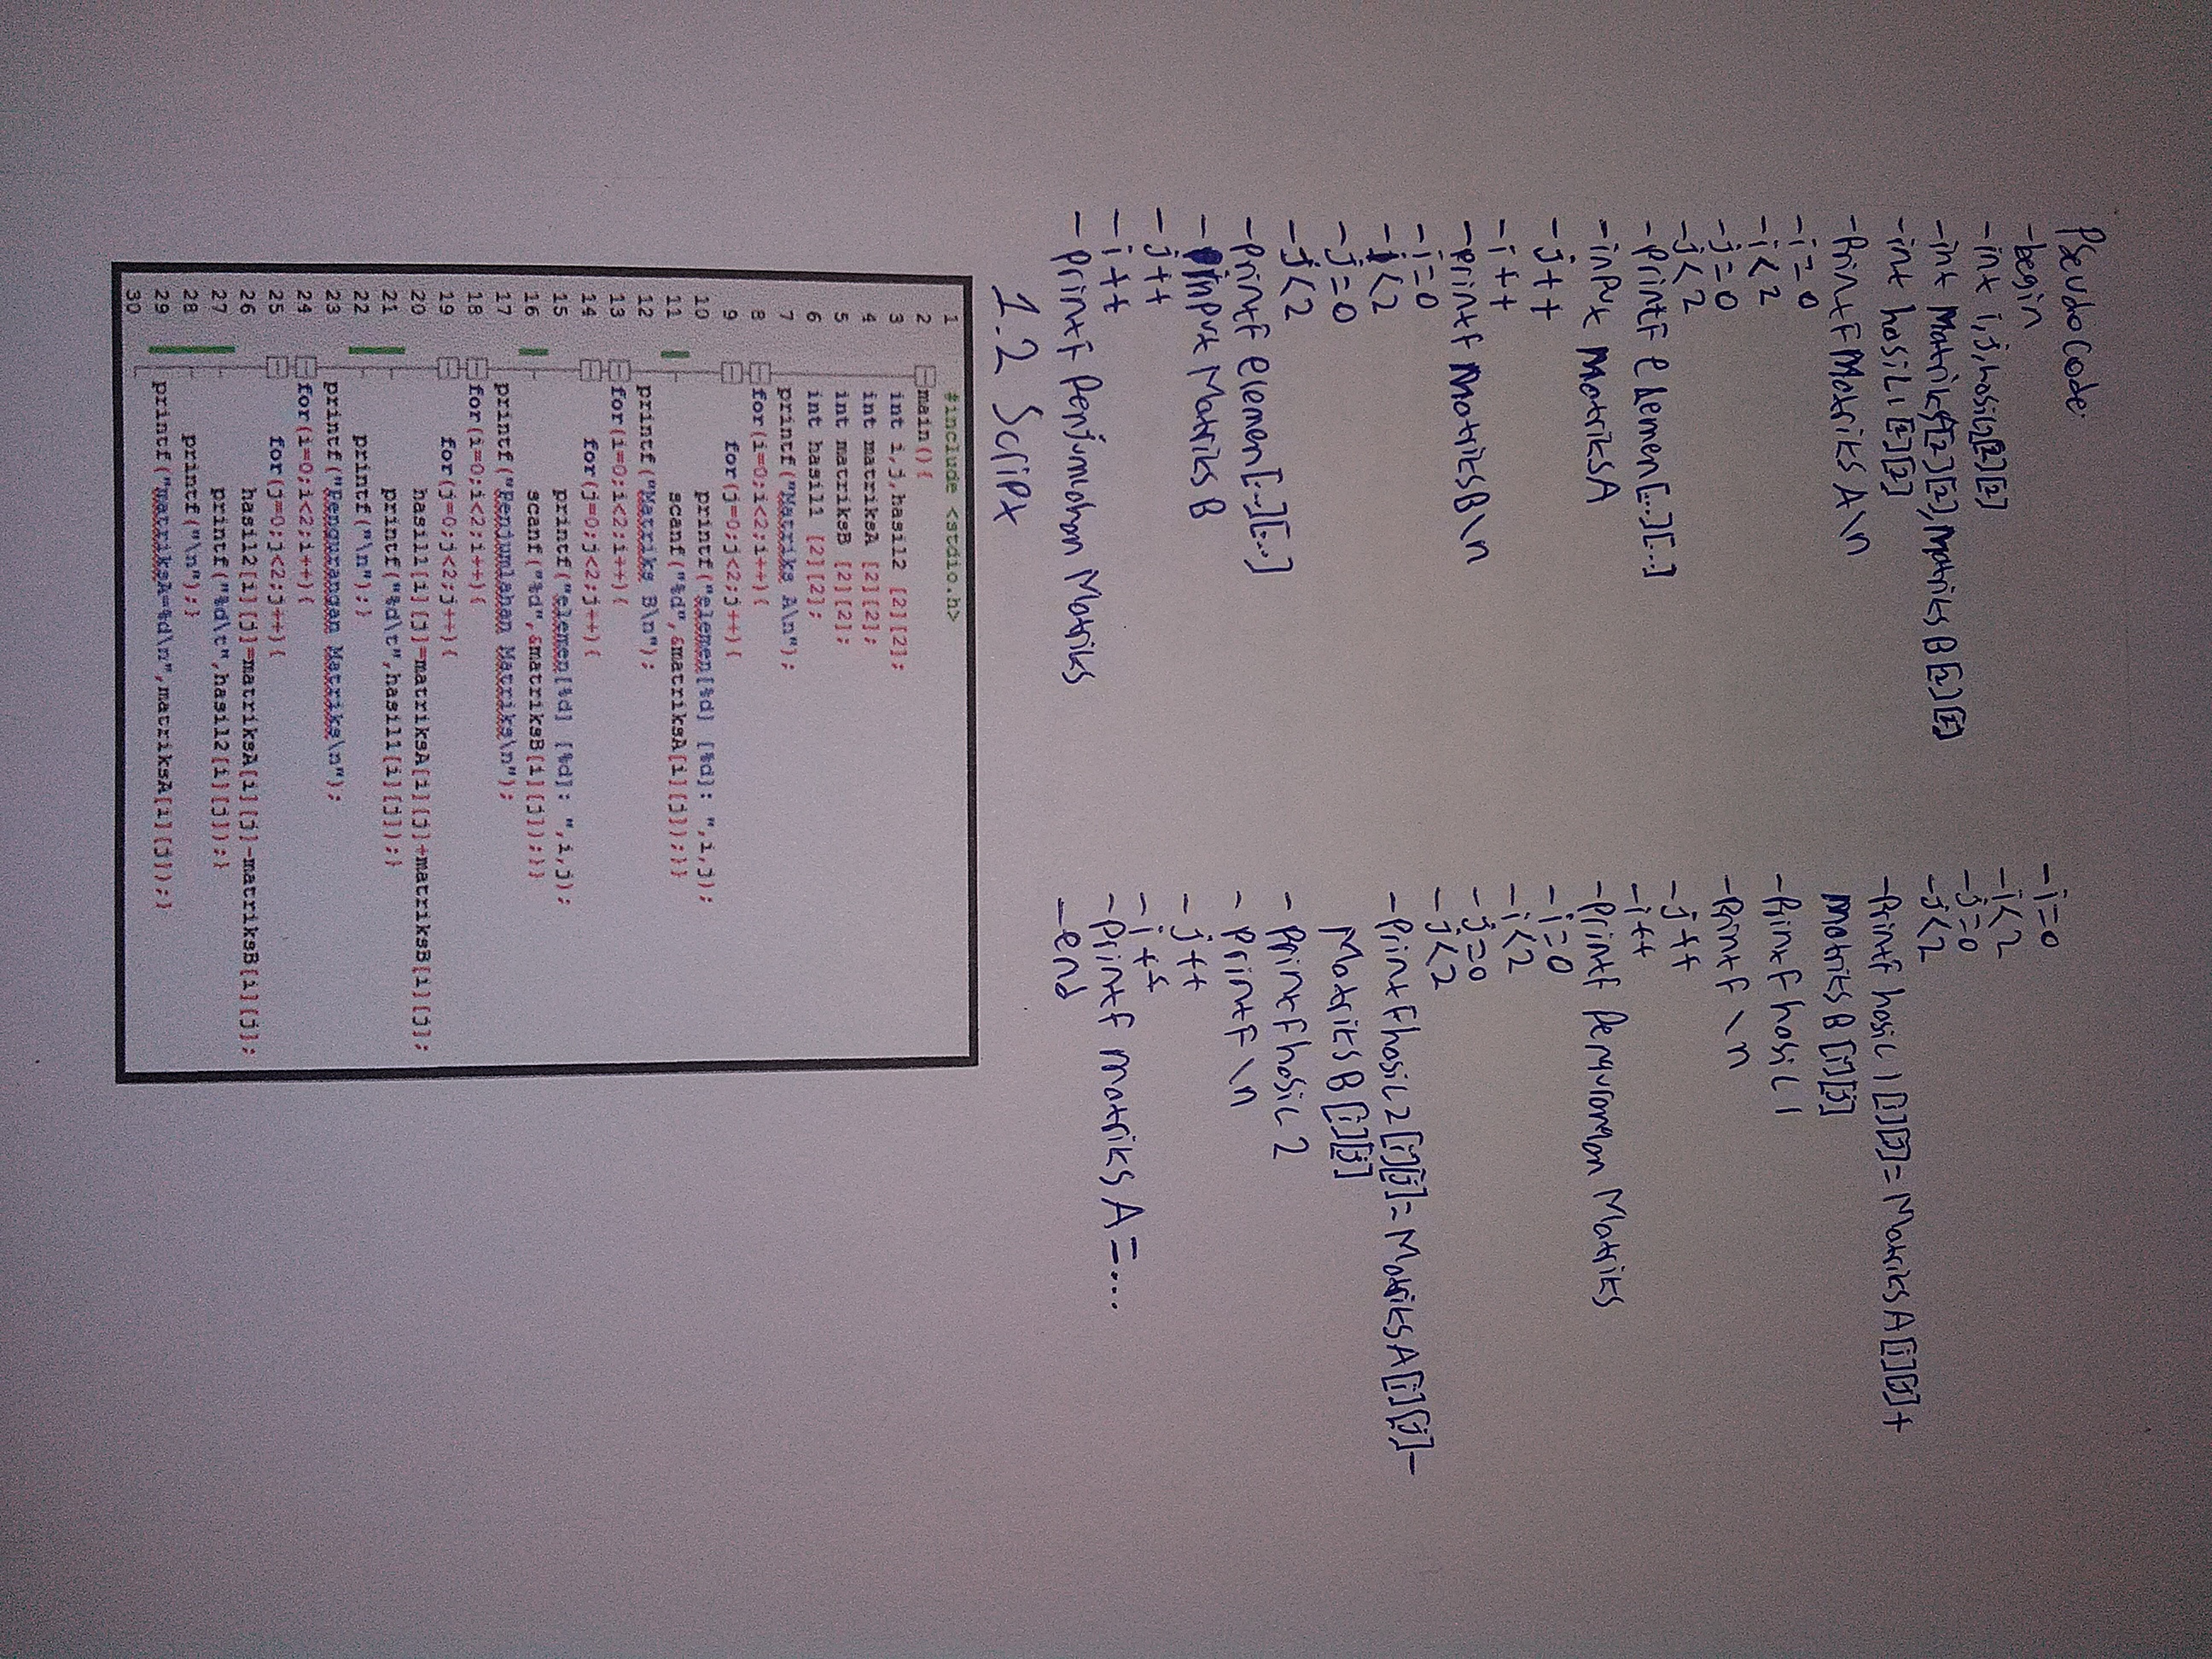 Pseudocode:
-begin
-int i,j,hasil2[2][2]
-int MatriksA[2][2],MatriksB[2][2]
-int hasil1[2][2]
-PrintfMatriksA\n
-i=0
-i<2
-j=0
-j<2
-printf elemen[...][...]
-input MatriksA
-j++
-i++
-printf MatriksB\n
-i=0
-i<2
-j=0
-j<2
-printf elemen[...][...]
-input MatriksB
-j++
-i++
-printf Penjumlahan Matriks
-i=0
-i<2
-j=0
-j<2
-Printf hasil1[i][j]=MatriksA[i][j]+
MatriksB[i][j]
-Printf hasil1
-Printf \n
-j++
-i++
-printf Pengurangan Matriks
-i=0
-i<2
-j=0
-j<2
-Printf hasil2[i][j]=MatriksA[i][j]-
MatriksB[i][j]
-printf hasil2
-printf \n
-j++
-i++
-printf matriksA=....
-end
1.2 Script
1 #include <stdio.h>
2 main(){
3 int i,j,hasil2 [2][2];
4 int matriksA [2][2];
5 int matriksB [2][2];
6 int hasil1 [2][2];
7 printf("Matriks A\n");
8 for(i=0;i<2;i++){
9 for(j=0;j<2;j++){
10 printf("elemen[%d] [%d]: ",i,j);
11 scanf("%d",&matriksA[i][j]);}}
12 printf("Matriks B\n");
13 for(i=0;i<2;i++){
14 for(j=0;j<2;j++){
15 printf("elemen[%d] [%d]: ",i,j);
16 scanf("%d",&matriksB[i][j]);}}
17 printf("Penjumlahan Matriks\n");
18 for(i=0;i<2;i++){
19 for(j=0;j<2;j++){
20 hasil1[i][j]=matriksA[i][j]+matriksB[i][j];
21 printf("%d\t",hasil1[i][j]);}
22 printf("\n");}
23 printf("Pengurangan Matriks\n");
24 for(i=0;i<2;i++){
25 for(j=0;j<2;j++){
26 hasil2[i][j]=matriksA[i][j]-matriksB[i][j];
27 printf("%d\t",hasil2[i][j]);}
28 printf("\n");}
29 printf("matriksA=%d\n",matriksA[i][j]);}
30